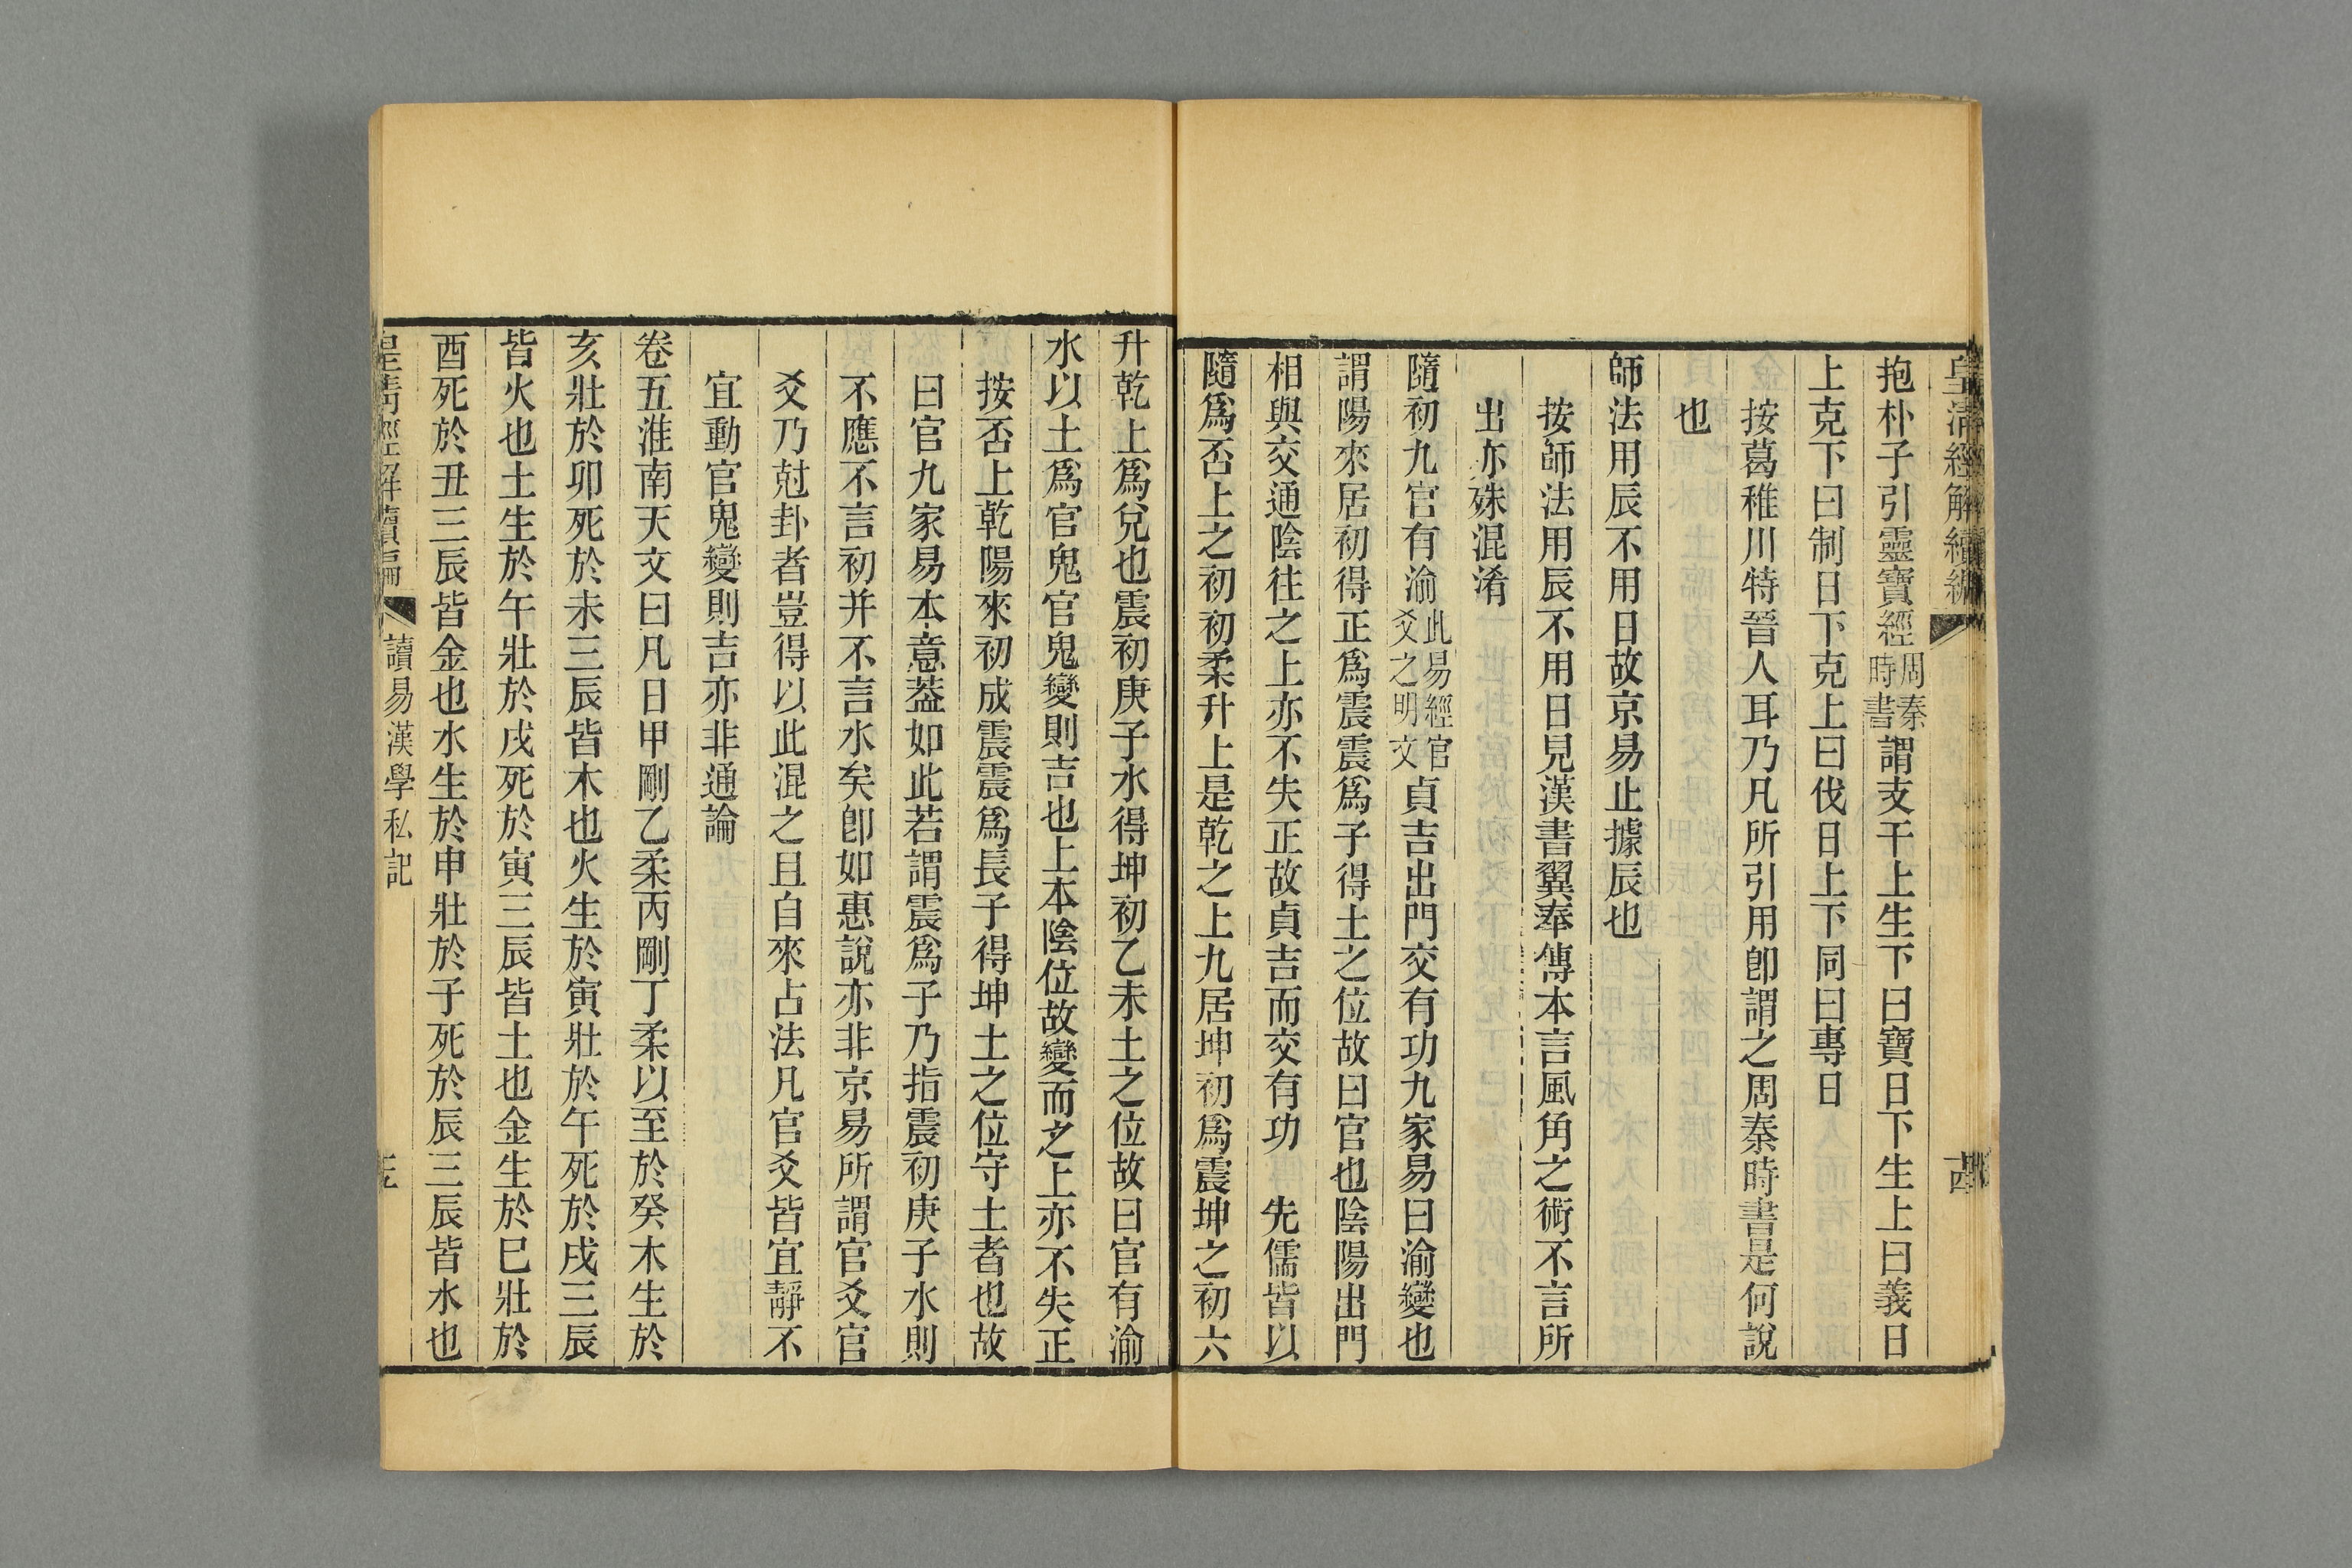 皇清經解續編
抱朴子引靈寶經周秦時書謂支干上生下曰寶日下生上曰義日
上克下曰制日下克上曰伐日上下同曰專日
按葛稚川特晉人耳乃凡所引用卽謂之周秦時書是何說
也
師法用辰不用日故京易止據辰也
按師法用辰不用日見漢書翼奉傳本言風角之術不言所
出亦殊混淆
隨初九官有渝此易經官爻之明文貞吉出門交有功九家易曰渝變也
謂陽來居初得正爲震震爲子得土之位故曰官也陰陽出門
相與交通陰往之上亦不失正故貞吉而交有功　先儒皆以
隨爲否上之初初柔升上是乾之上九居坤初爲震坤之初六
升乾上爲兌也震初庚子水得坤初乙未土之位故曰官有渝
水以土爲官鬼官鬼變則吉也上本陰位故變而之上亦不失正
按否上乾陽來初成震震爲長子得坤土之位守土者也故
曰官九家易本意葢如此若謂震爲子乃指震初庚子水則
不應不言初并不言水矣卽如惠說亦非京易所謂官爻官
爻乃尅卦者豈得以此混之且自來占法凡官爻皆宜靜不
宜動官鬼變則吉亦非通論
卷五淮南天文曰凡日甲剛乙柔丙剛丁柔以至於癸木生於
亥壯於卯死於未三辰皆木也火生於寅壯於午死於戌三辰
皆火也土生於午壯於戌死於寅三辰皆土也金生於巳壯於
酉死於丑三辰皆金也水生於申壯於子死於辰三辰皆水也
皇清經解續編　讀易漢學私記